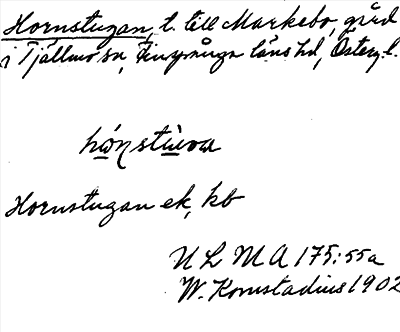 Hornstugan, t. till Markebo, gård
i Tjällmo sn, Finspånga läns hd, Österg. l.
hɷ́ɳstùva
Hornstugan ek, kb
ULMA 175:55a
W. Kornstadius 1902